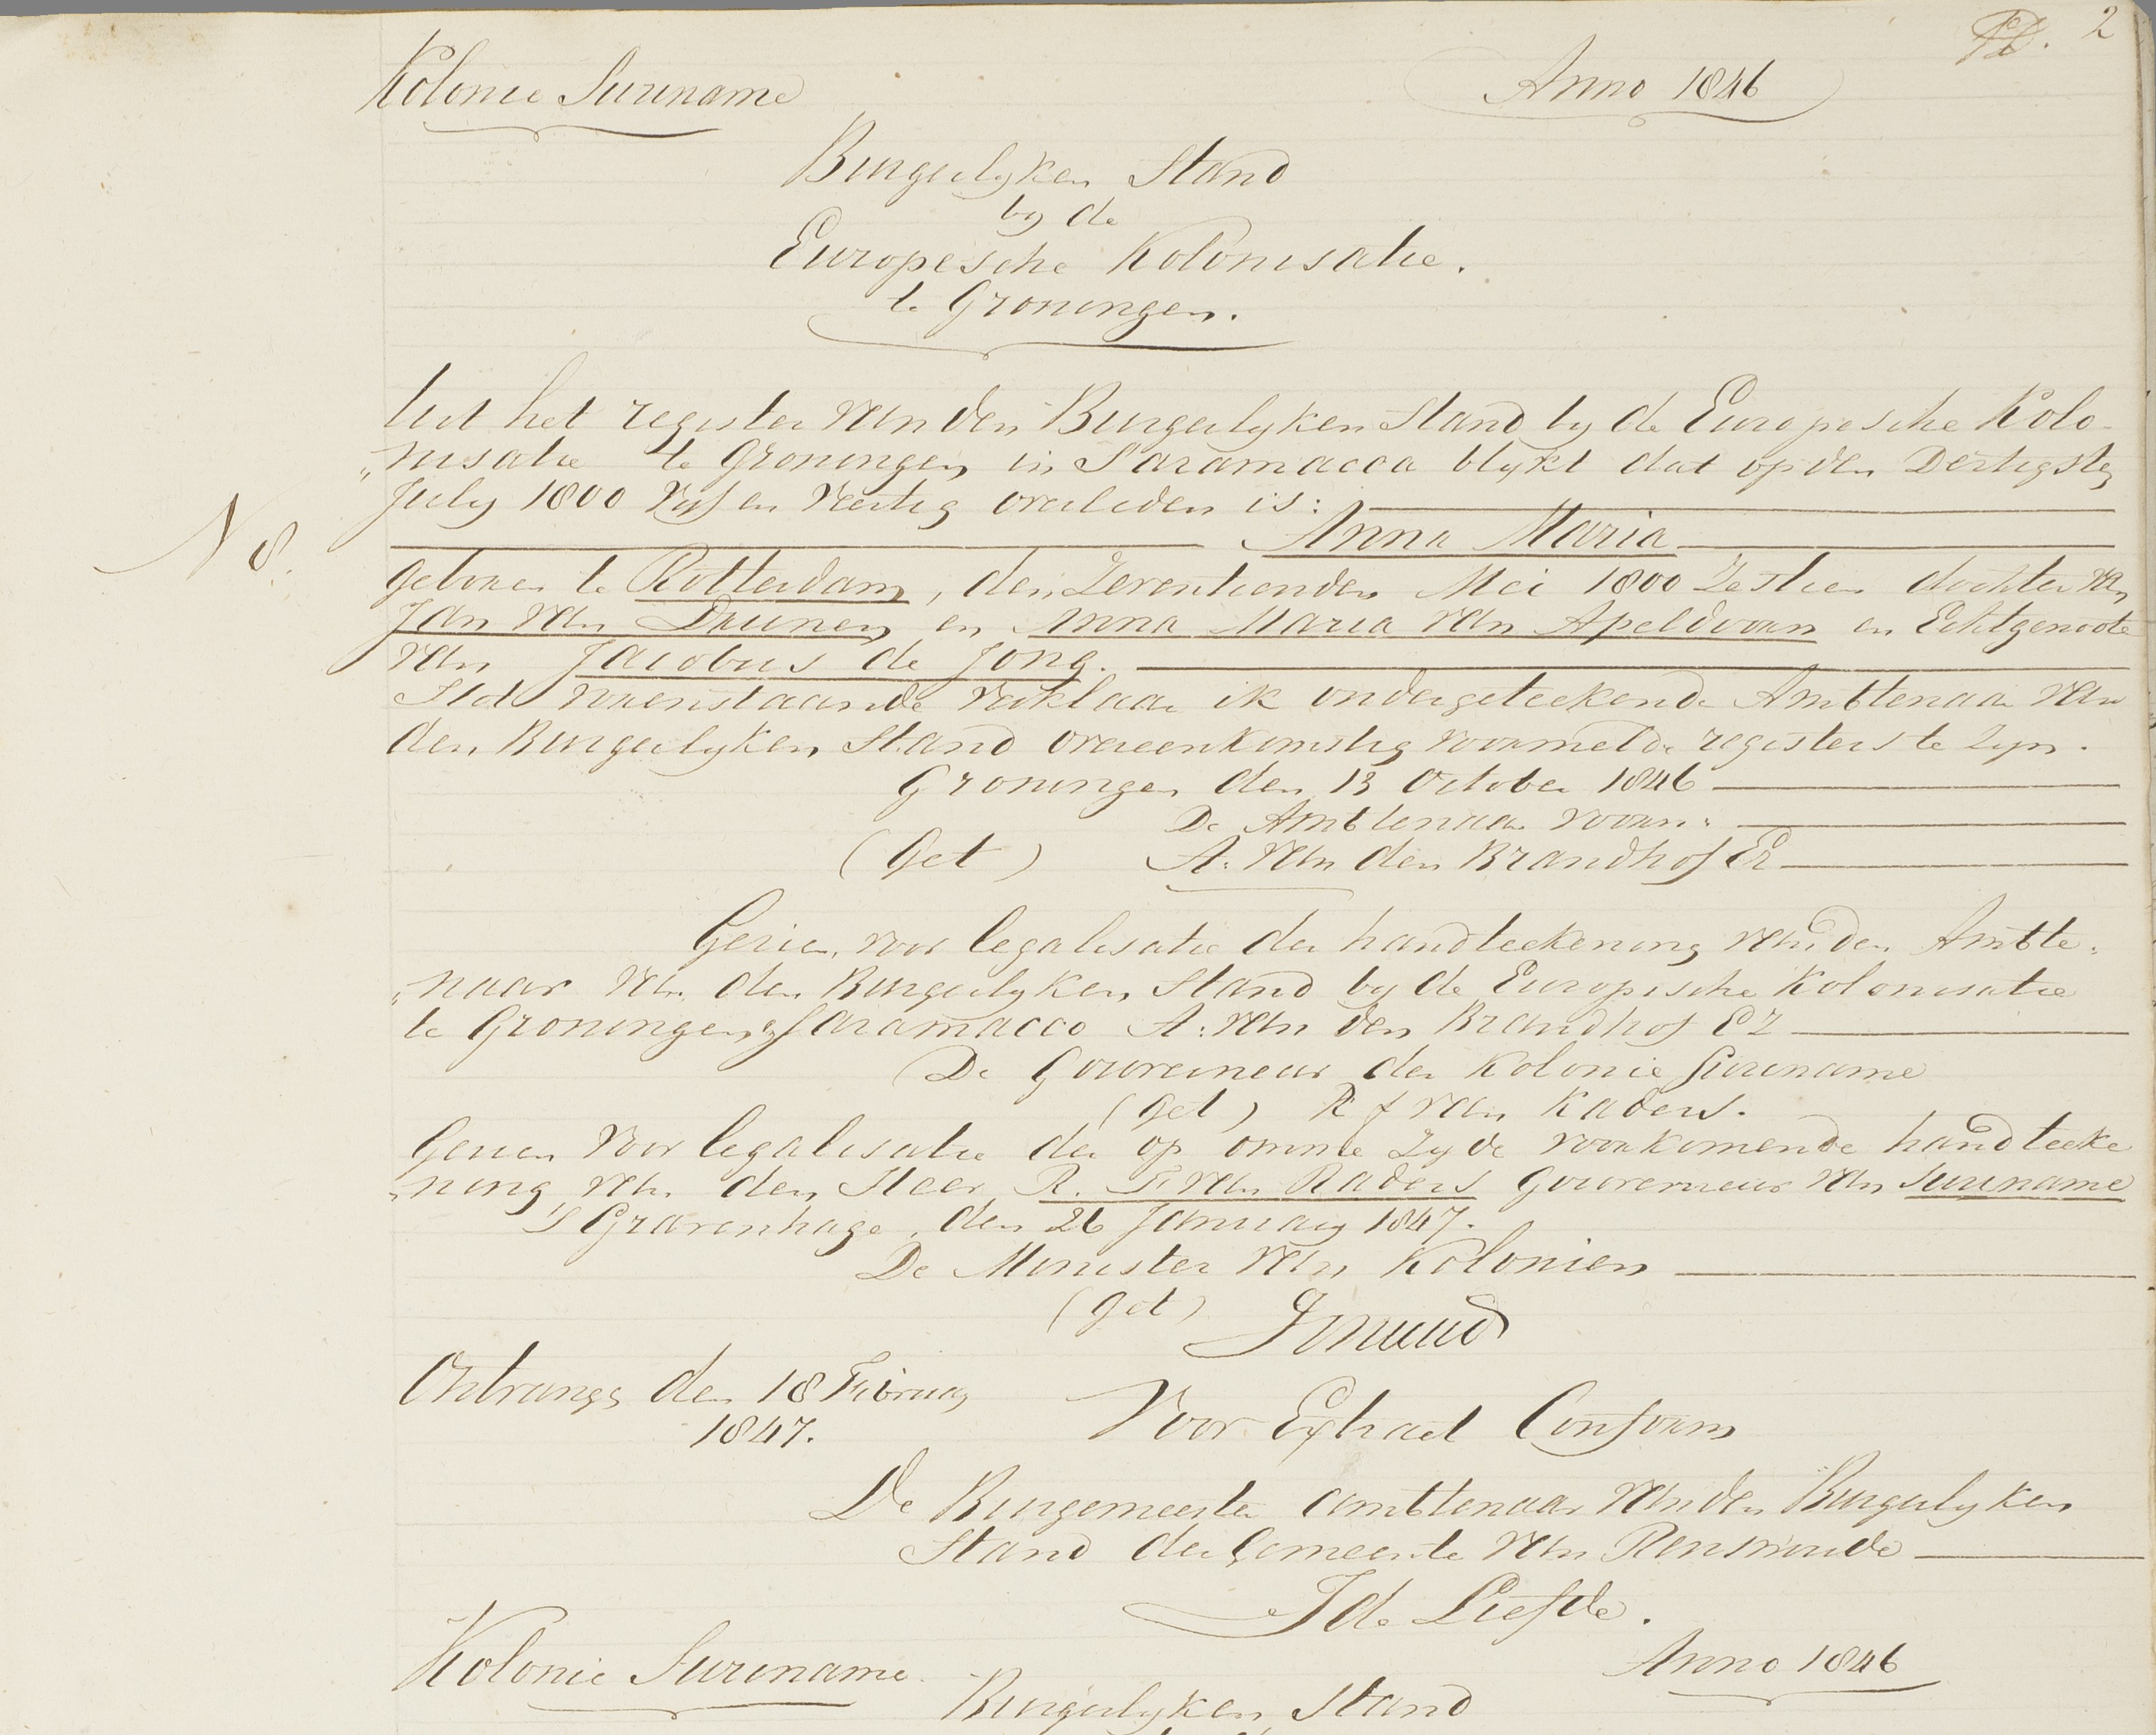 2
Kolonie Suriname
Anno 1846
Burgerlyken Stand
by de
Europesche Kolonisatie.
te Groningen.
Uit het register van den Burgerlyken Stand by de Europesche Kolo-
"nisatie te Groningen in Saramacca blykt dat op den Dertigsten
July 1800 Vyf en Veertig overleden is:
N 8.
Anna Maria
geboren te Rotterdam, den Zeventienden Mei 1800 Zestien dochter van
Jan van Drunen en Anna Maria van Apeldoorn en Echtgenoote
van Jacobus de Jong.
Het vorenstaande verklaar ik ondergeteekende Ambtenaar van
den Burgerlyken Stand overeenkomstig voormelde registers te zyn.
Groningen den 13 October 1846
De Ambtenaar voorn:
(Get) A: van den Brandhof Ez
Gezien, voor legalisatie der handteekening van den Ambte-
"naar van den Burgerlyken Stand by de Europische Kolonisatie
te Groningen Saramacco A: van den Brandhof Ez
De Gouverneur der Kolonie Suriname
(get) R f van Raders.
Gezien voor legalisatie der op omme zyde voorkomende handteeke
"ning van den Heer R. F. van Raders Gouverneur van Suriname
'S Gravenhage, den 26 January 1847.
De Minister van Kolonien
(get)
Ontvangs den 18 February
1847.
Voor Extract Conform
De Burgemeester ambtenaar van den Burgerlyken
Stand der Gemeente van Renswoude
J de Liefde.
Kolonie Suriname
Anno 1846
Burgerlyken Stand